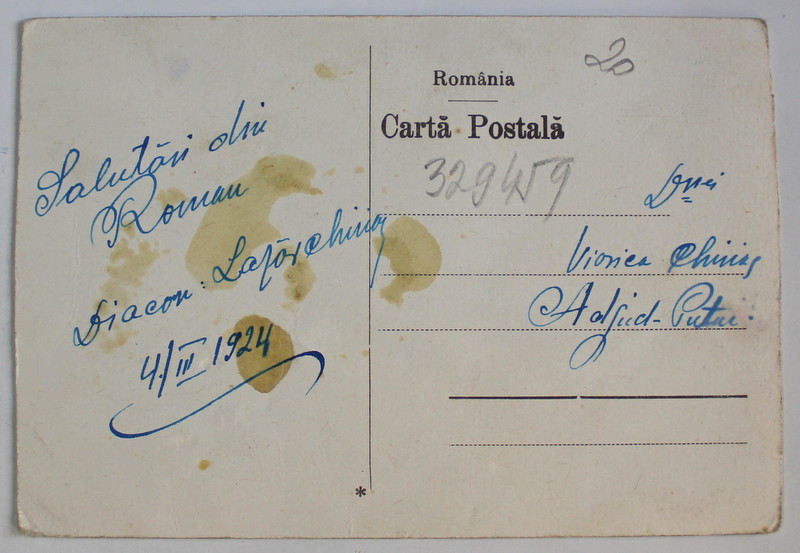 Salutări din
Roman
Diacon: Lazăr Chiriac
4/III 1924
România
20
Cartă Postală
329459
Dnei
Viorica Chiriac
Adjud - Putna.
*